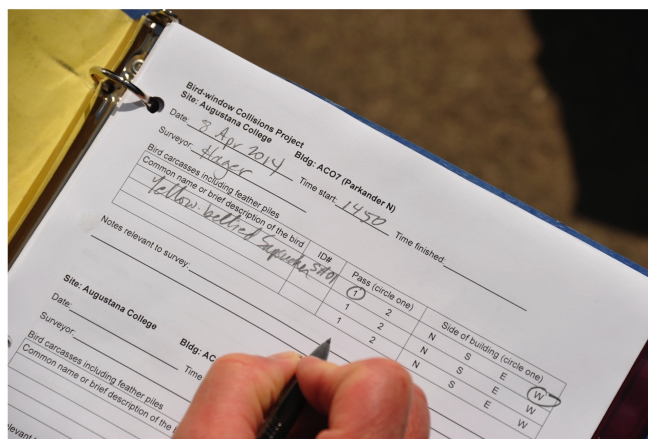 Bird-window Collisions Project
Site: Augustana College Bldg: ACO7 (Parkander N)
Date: 8 Apr 2014 Time start: 1450 Time finished:
Surveyor: Hager
Bird carcasses including feather piles
Common name or brief description of the bird ID# Pass (circle one) Side of building (circle one)
Yellow-bellied Sapsucker SH01 1 2 N S E W
1 2 N S E W
1 2 N S E W
Notes relevant to survey:
Site: Augustana College Bldg: AC
Date: Time
Surveyor:
Bird carcasses including feather piles
Common name or brief description of the b
relevant